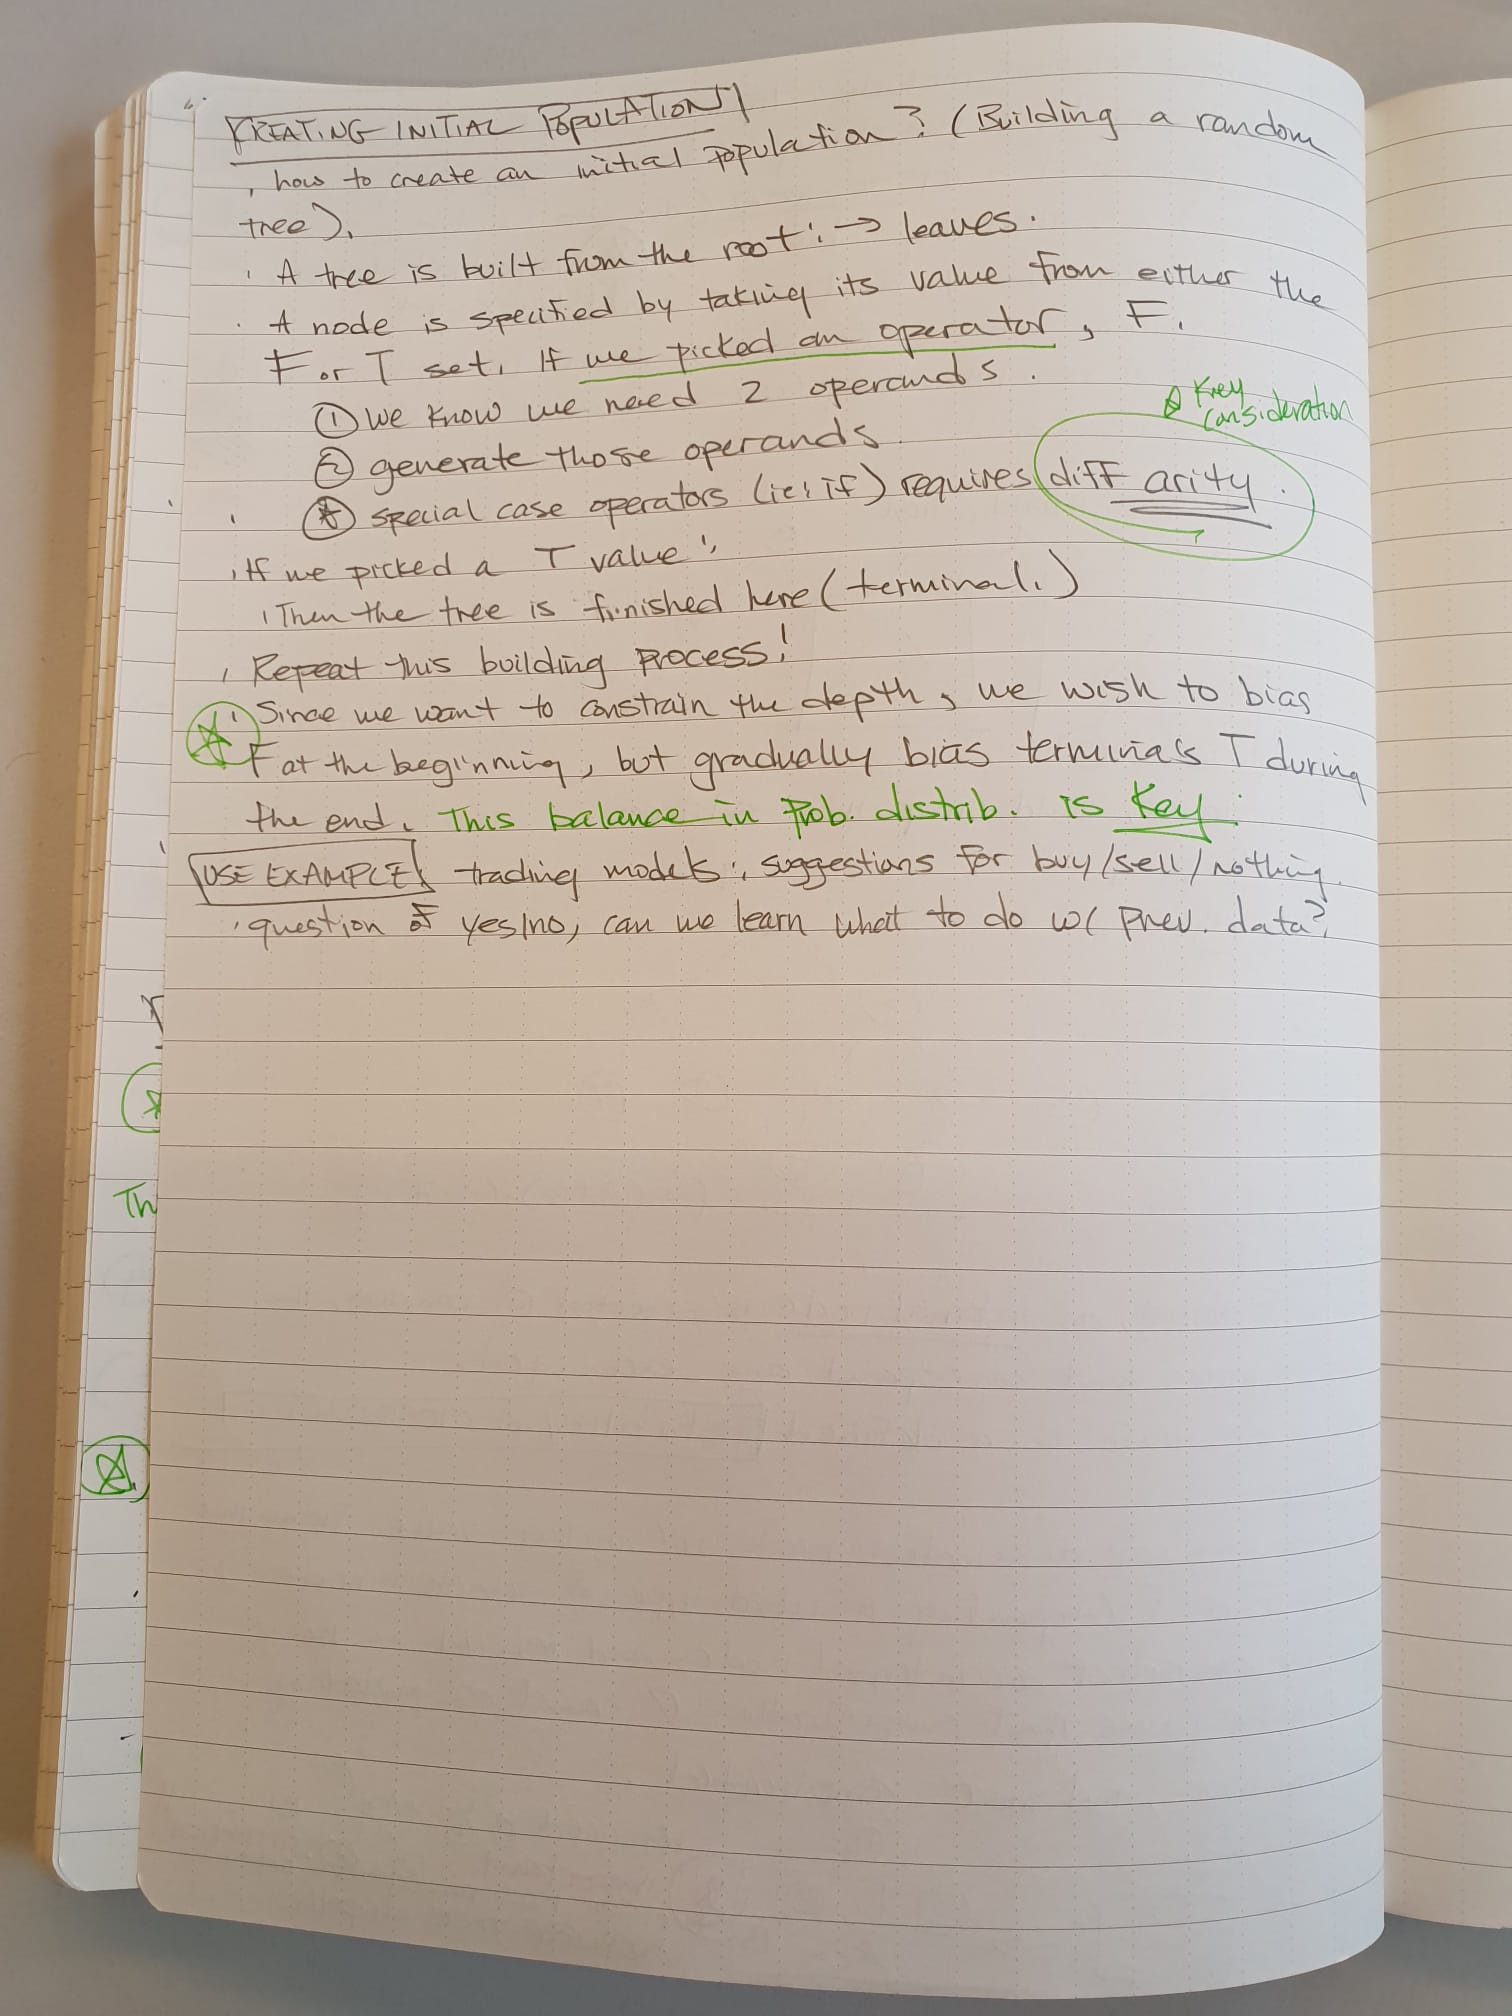 CREATING INITIAL POPULATION
, how to create an initial population? (Building a random
tree).
· A tree is built from the root: → leaves.
· A node is specified by taking its value from either the
F or T set. If we picked an operator, F.
① We know we need 2 operands.
② generate those operands.
☆ Key
consideration
☆ special case operators (ie: if) requires diff arity.
· If we picked a T value:
· Then the tree is finished here (terminal.)
· Repeat this building process!
☆ · Since we want to constrain the depth, we wish to bias
F at the beginning, but gradually bias terminals T during
the end. This balance in prob. distrib. is key.
USE EXAMPLE trading models: suggestions for buy/sell/nothing.
· question of yes/no, can we learn what to do w/ prev. data?
☆
Th
☆